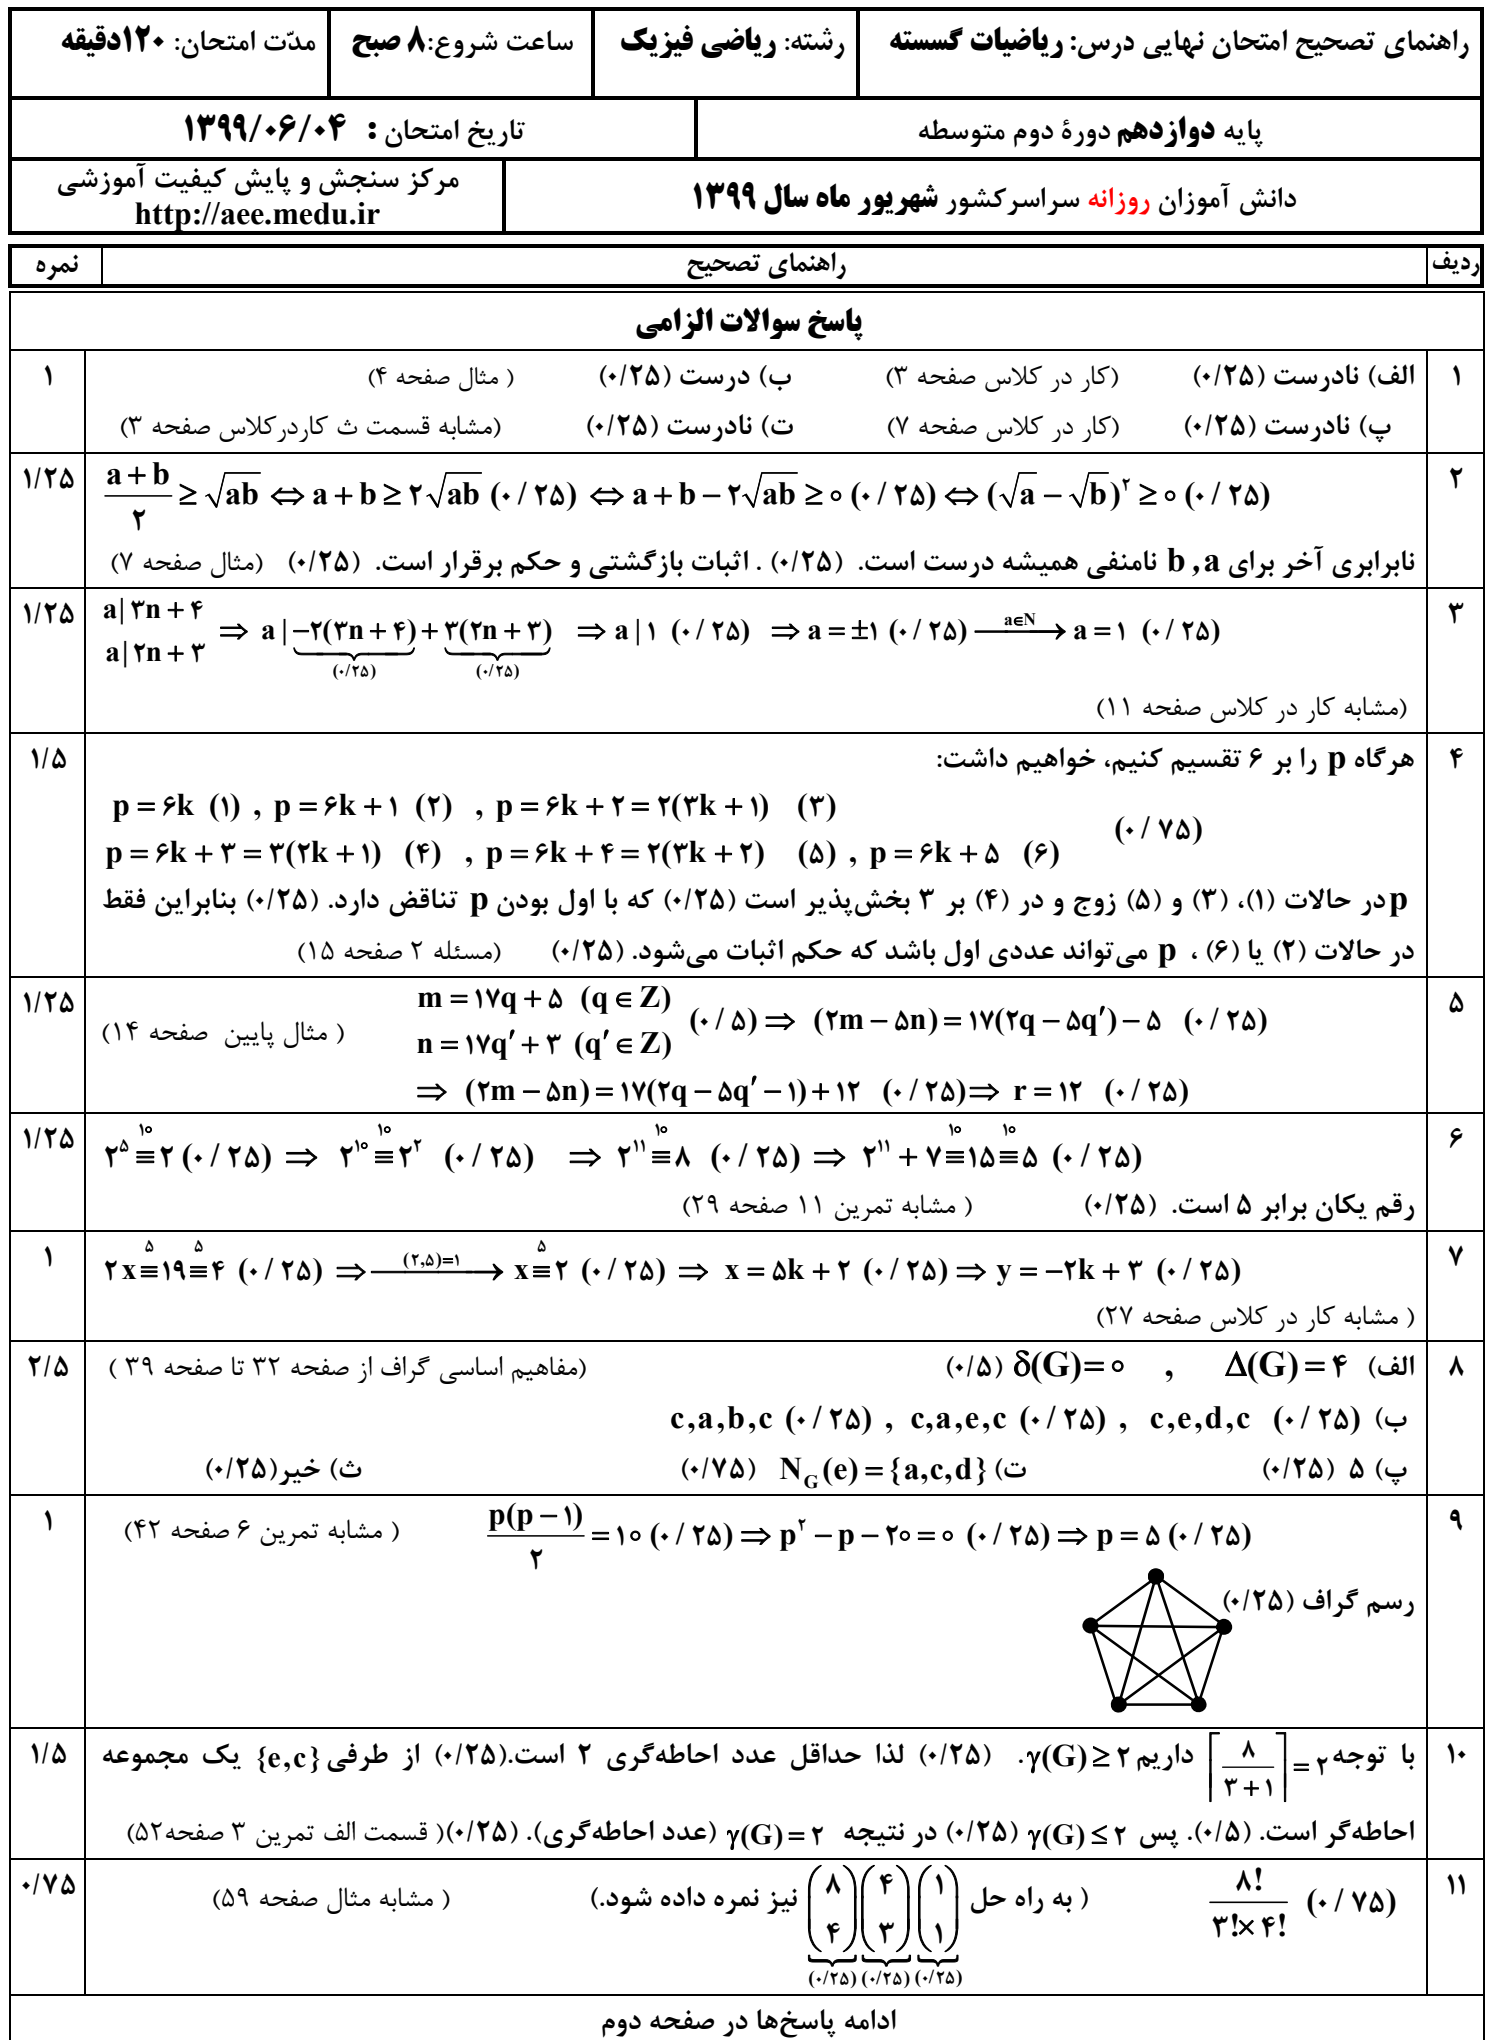 راهنمای تصحیح امتحان نهایی درس: ریاضیات گسسته رشته: ریاضی فیزیک ساعت شروع:۸ صبح مدّت امتحان: ۱۲۰دقیقه
پایه دوازدهم دورهٔ دوم متوسطه تاریخ امتحان : ۱۳۹۹/۰۶/۰۴
دانش آموزان روزانه سراسرکشور شهریور ماه سال ۱۳۹۹ مرکز سنجش و پایش کیفیت آموزشی
http://aee.medu.ir
ردیف راهنمای تصحیح نمره
پاسخ سوالات الزامی
۱ الف) نادرست (۰/۲۵) (کار در کلاس صفحه ۳) ب) درست (۰/۲۵) ( مثال صفحه ۴) ۱
پ) نادرست (۰/۲۵) (کار در کلاس صفحه ۷) ت) نادرست (۰/۲۵) (مشابه قسمت ث کاردرکلاس صفحه ۳)
۲ (a+b)/۲ ≥ √ab ⇔ a+b ≥ ۲√ab (۰/۲۵) ⇔ a+b−۲√ab ≥ ۰ (۰/۲۵) ⇔ (√a − √b)^۲ ≥ ۰ (۰/۲۵) ۱/۲۵
نابرابری آخر برای b , a نامنفی همیشه درست است. (۰/۲۵) . اثبات بازگشتی و حکم برقرار است. (۰/۲۵) (مثال صفحه ۷)
۳ a|۳n+۴ a|۲n+۳ ⇒ a|−۲(۳n+۴) (۰/۲۵) + ۳(۲n+۳) (۰/۲۵) ⇒ a|۱ (۰/۲۵) ⇒ a=±۱ (۰/۲۵) —a∈N→ a=۱ (۰/۲۵) ۱/۲۵
(مشابه کار در کلاس صفحه ۱۱)
۴ هرگاه p را بر ۶ تقسیم کنیم، خواهیم داشت: ۱/۵
p=۶k (۱) , p=۶k+۱ (۲) , p=۶k+۲=۲(۳k+۱) (۳)
p=۶k+۳=۳(۲k+۱) (۴) , p=۶k+۴=۲(۳k+۲) (۵) , p=۶k+۵ (۶) (۰/۷۵)
p در حالات (۱)، (۳) و (۵) زوج و در (۴) بر ۳ بخش‌پذیر است (۰/۲۵) که با اول بودن p تناقض دارد. (۰/۲۵) بنابراین فقط
در حالات (۲) یا (۶) ، p می‌تواند عددی اول باشد که حکم اثبات می‌شود. (۰/۲۵) (مسئله ۲ صفحه ۱۵)
۵ m=۱۷q+۵ (q∈Z) n=۱۷q′+۳ (q′∈Z) (۰/۵) ⇒ (۲m−۵n)=۱۷(۲q−۵q′)−۵ (۰/۲۵) ( مثال پایین صفحه ۱۴) ۱/۲۵
⇒ (۲m−۵n)=۱۷(۲q−۵q′−۱)+۱۲ (۰/۲۵) ⇒ r=۱۲ (۰/۲۵)
۶ ۲^۵ ≡^۱۰ ۲ (۰/۲۵) ⇒ ۲^۱۰ ≡^۱۰ ۲^۲ (۰/۲۵) ⇒ ۲^۱۱ ≡^۱۰ ۸ (۰/۲۵) ⇒ ۲^۱۱+۷ ≡^۱۰ ۱۵ ≡^۱۰ ۵ (۰/۲۵) ۱/۲۵
رقم یکان برابر ۵ است. (۰/۲۵) ( مشابه تمرین ۱۱ صفحه ۲۹)
۷ ۲x ≡^۵ ۱۹ ≡^۵ ۴ (۰/۲۵) ⇒ —(۲,۵)=۱→ x ≡^۵ ۲ (۰/۲۵) ⇒ x=۵k+۲ (۰/۲۵) ⇒ y=−۲k+۳ (۰/۲۵) ۱
( مشابه کار در کلاس صفحه ۲۷)
۸ الف) Δ(G)=۴ , δ(G)=۰ (۰/۵) (مفاهیم اساسی گراف از صفحه ۳۲ تا صفحه ۳۹ ) ۲/۵
ب) c,a,b,c (۰/۲۵) , c,a,e,c (۰/۲۵) , c,e,d,c (۰/۲۵)
پ) ۵ (۰/۲۵) ت) N_G(e)={a,c,d} (۰/۷۵) ث) خیر(۰/۲۵)
۹ p(p−۱)/۲ = ۱۰ (۰/۲۵) ⇒ p^۲−p−۲۰=۰ (۰/۲۵) ⇒ p=۵ (۰/۲۵) ( مشابه تمرین ۶ صفحه ۴۲) ۱
رسم گراف (۰/۲۵)
۱۰ با توجه ⌈۸/(۳+۱)⌉=۲ داریم γ(G)≥۲. (۰/۲۵) لذا حداقل عدد احاطه‌گری ۲ است.(۰/۲۵) از طرفی {e,c} یک مجموعه ۱/۵
احاطه‌گر است. (۰/۵). پس γ(G)≤۲ (۰/۲۵) در نتیجه γ(G)=۲ (عدد احاطه‌گری). (۰/۲۵)( قسمت الف تمرین ۳ صفحه۵۲)
۱۱ ۸!/(۳!×۴!) (۰/۷۵) ( به راه حل (۸ ۴) (۰/۲۵) (۴ ۳) (۰/۲۵) (۱ ۱) (۰/۲۵) نیز نمره داده شود.) ( مشابه مثال صفحه ۵۹) ۰/۷۵
ادامه پاسخ‌ها در صفحه دوم